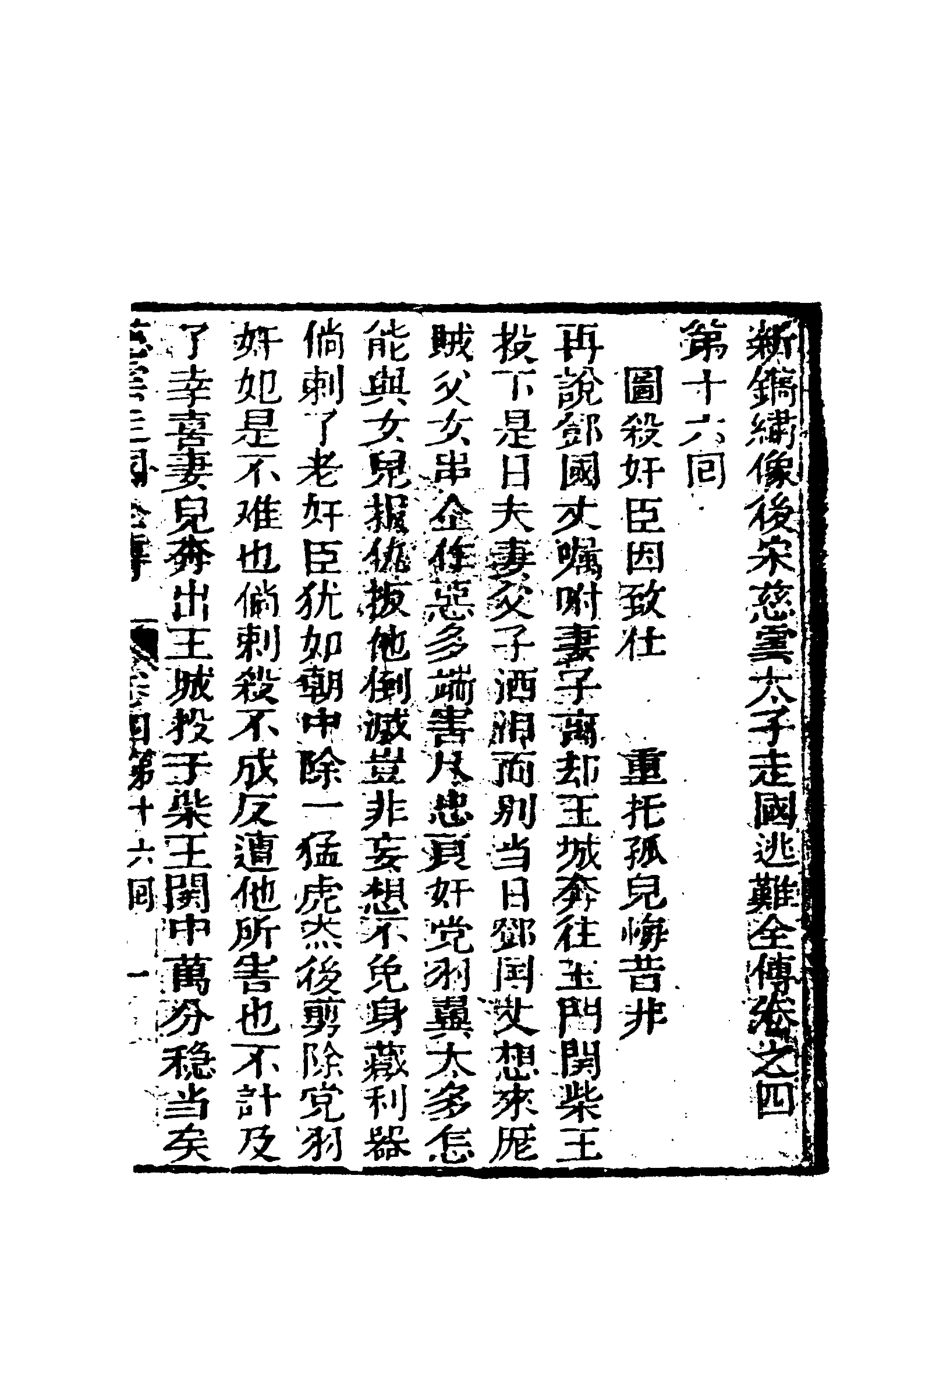 新鐫繡像後宋慈雲太子走國逃難全傳卷之四
第十六回
圖殺奸臣因致仕　重托孤兒悔昔非
再說鄧國丈嘱咐妻子离却王城奔往玉門関柴王
投下是日夫妻父子洒泪而别当日鄧囯丈想來厐
賊父女串仝作惡多端害凡忠良奸党羽翼太多怎
能與女兒报仇扳他倒滅豈非妄想不免身藏利器
倘刺了老奸臣犹如朝中除一猛虎然後剪除党羽
奸如是不难也倘刺殺不成反遭他所害也不計及
了幸喜妻兒奔出王城投于柴王関中萬分稳当矣
慈雲走國全傳　卷四第十六回　一